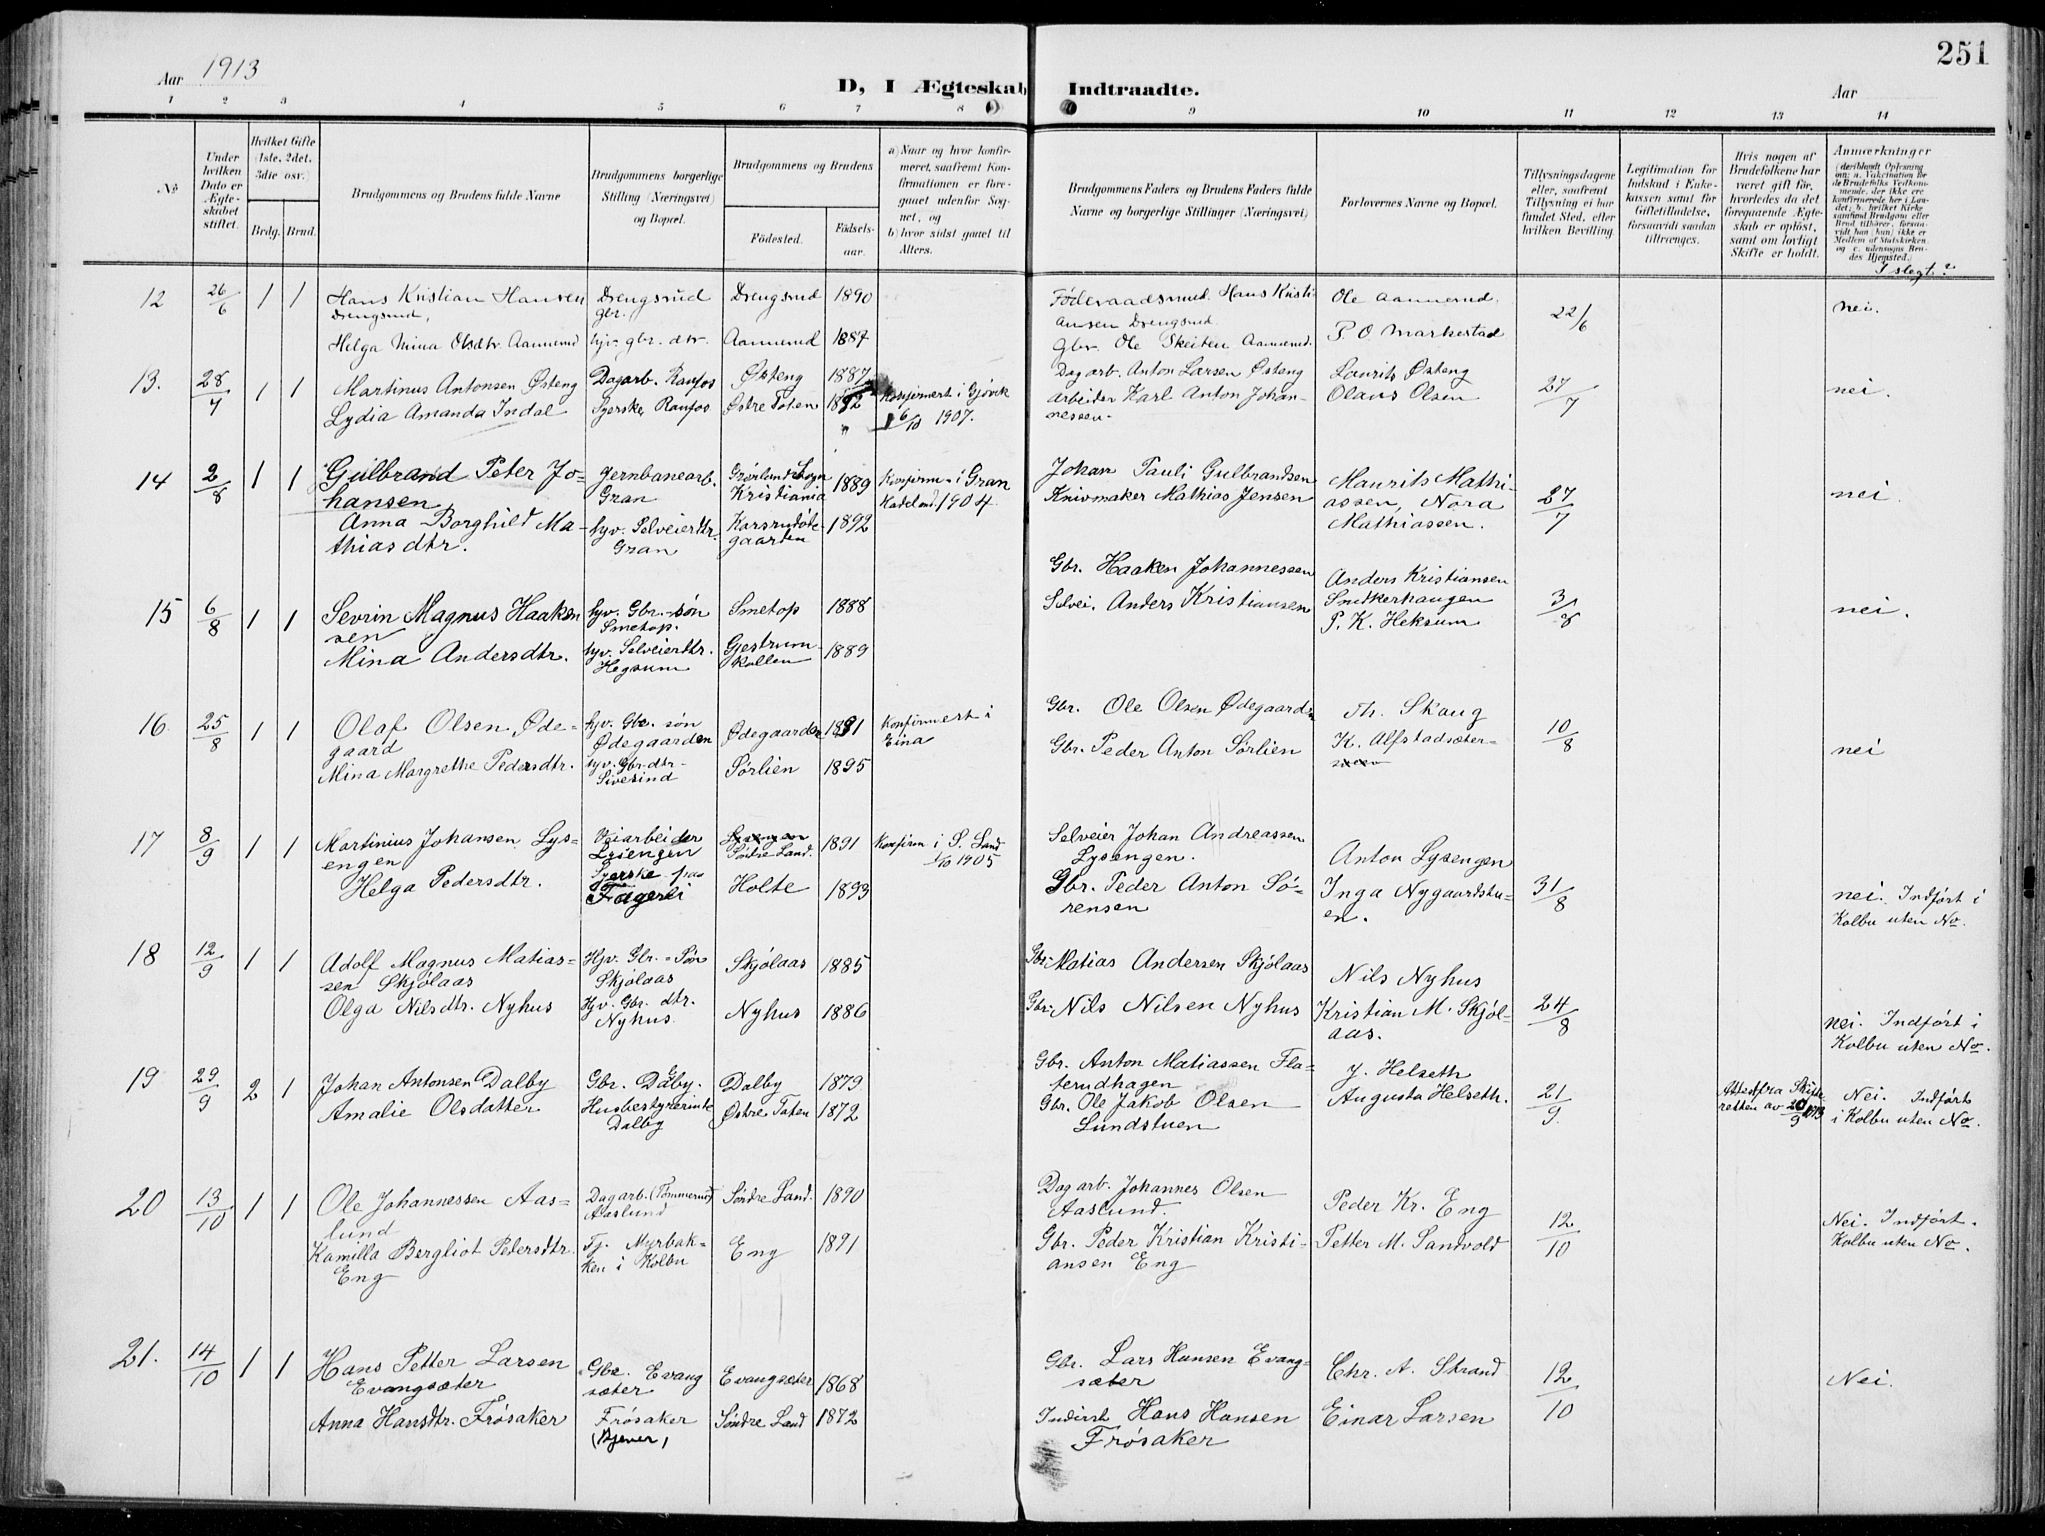 251
Aar 1913
D, I Ægteskab Indtraadte.
Aar
1 2 3 4 5 6 7 8 9 10 11 12 13 14
No
Under hvilken Dato er Ægteskabet stiftet.
Hvilket Gifte (1ste, 2det, 3die osv.)
Brdg. Brud.
Brudgommens og Brudens fulde Navne
Brudgommens borgerlige Stilling (Næringsvei) og Bopæl.
Brudgommens og Brudens
Fødested.
Fødselsaar.
a) Naar og hvor konfirmeret, saafremt Konfirmationen er foregaaet udenfor Sognet, og
b) hvor sidst gaaet til Alters.
Brudgommens Faders og Brudens Faders fulde Navne og borgerlige Stillinger (Næringsvei)
Forlovernes Navne og Bopæl.
Tillysningsdagene eller, saafremt Tillysning ei har fundet Sted, efter hvilken Bevilling.
Legitimation for Indskud i Enkekassen samt for Giftetilladelse, forsaavidt saadan tiltrænges.
Hvis nogen af Brudefolkene har været gift før, hvorledes da det foregaaende Ægteskab er opløst, samt om lovligt Skifte er holdt.
Anmærkninger
(deriblandt Oplysning om: a. Vakcination for de Brudefolks Vedkommende, der ikke ere konfirmerede her i Landet; b. hvilket Kirkesamfund Brudgom eller Brud tilhører, forsaavidt han (hun) ikke er Medlem af Statskirken, og c. udensogns Brudes Hjemsted.)
I slegt?
12 26/6 1 1 Hans Kristian Hansen Drengsrud Drengsrud 1890
Drengsrud, gbr.
Helga Mina Olsdtr. Aannerud hjv. gbr. dtr. Aannerud 1887
Føderaadsmd. Hans Kristi- Ole Aannerud. 22/6 nei.
ansen Drengsrud.
Gbr. Ole Skeiten Aannerud. P. O Markestad
13. 28/7 1 1 Martinus Antonsen Østeng Dagarb. Raufos Østeng 1887
Lydia Amanda Indal Syerske, Raufos Østre Toten 1892 Konfirmert i Gjøvik
6/10 1907.
Dagarb. Anton Larsen Østeng Laurits Østeng 27/7 nei.
arbeider Karl Anton Johan- Olaus Olsen
nessen.
14 2/8 1 1 Gulbrand Peter Jo- Jernbanearb. Grønland Sogn 1889 Konfirm. i Gran
hansen Gran Kristiania Hadeland 1904
Anna Borghild Ma- hjv. Selveierdtr. Karsrudøde- 1892
thiasdtr. Gran gaarden
Johan Pauli Gulbrandsen Maurits Mathi-
Knivmaker Mathias Jensen assen, Nora 27/7 nei
Mathiassen.
15 6/8 1 1 Sevrin Magnus Haaken hjv. Gbr.-søn Smetop 1888
sen Smetop.
Mina Andersdtr. hjv. Selveierdtr. Gjestrum- 1889
Hegsum kollen
Gbr. Haaken Johannessen Anders Kristiansen
Selvei. Anders Kristiansen Snedkerhaugen 3/8 nei.
P. K. Heksum
16 25/8 1 1 Olaf Olsen Øde- hjv. Gbr. søn Ødegaarden 1891 Konfirmert i
gaard Ødegaarden Eina
Mina Margrethe Pedersdtr. hjv. Gbr. dtr. Sørlien 1895
Sivesind
Gbr. Ole Olsen Ødegaarden Th. Skaug
Gbr. Peder Anton Sørlien K. Alfstadsæter- 10/8 nei
17 8/9 1 1 Martinius Johansen Lys- Veiarbeider Lysengen 1891 Konfirm i S. Land
engen Lysengen Søndre Land. 1/10 1905
Helga Pedersdtr. Syerske fra Holte 1893
Fagerli
Selveier Johan Andreassen
Lysengen. Anton Lysengen
Gbr. Peder Anton Sø- Inga Nygaardstu- 31/8 nei. Indført i
rensen en. Kolbu uten No.
18 12/9 1 1 Adolf Magnus Matias- Hjv. Gbr.-Søn Skjølaas 1885
sen Skjølaas Skjølaas
Olga Nilsdtr. Nyhus Hjv. Gbr. dtr. Nyhus 1886
Nyhus.
Gbr. Matias Andersen Skjølaas Nils Nyhus
Gbr. Nils Nilsen Nyhus Kristian M. Skjøl- 24/8 nei. Indført i
aas. Kolbu uten No.
19 29/9 2 1 Johan Antonsen Dalby Gbr. Dalby. Dalby 1879
Amalie Olsdatter Husbestyrerinde Østre Toten 1872
Dalby
Gbr. Anton Matiassen Fla- J. Helseth
terudhagen Augusta Helseth. 21/9. Attest fra Skifte- Nei. Indført
Gbr. Ole Jakob Olsen retten av 20/9 1913 i Kolbu uten No.
Lundstuen
20 13/10 1 1 Ole Johannessen Aas- Dagarb. (Tømmermd) Søndre Land. 1890
lund Aaslund
Kamilla Bergliot Pedersdtr. Tj. Myrbak- Eng 1891
Eng ken i Kolbu
Dagarb. Johannes Olsen Peder Kr. Eng
Aaslund. 12/10 Nei. Indført.
Gbr. Peder Kristian Kristi- Petter M. Sandvold Kolbu uten No.
ansen Eng
21. 14/10 1 1 Hans Petter Larsen Gbr. Evang Evangsæter 1868
Evangsæter sæter
Anna Hansdtr. Frøsaker Frøsaker Søndre Land 1872
Gbr. Lars Hansen Evang- Chr. A. Strand 12/10 Nei.
sæter
Inderst Hans Hansen Einar Larsen
Frøsaker